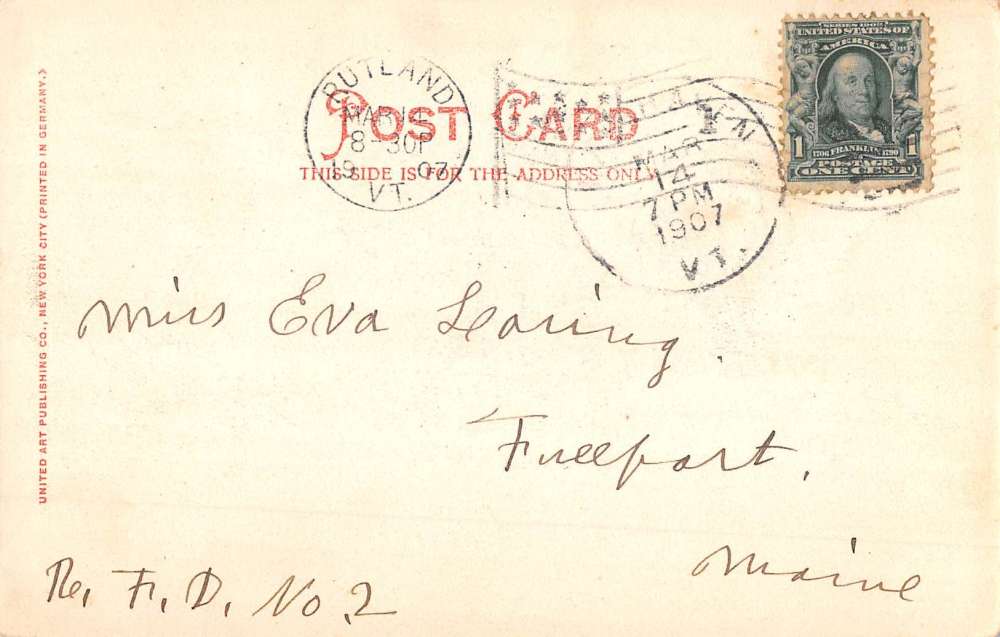 UNITED ART PUBLISHING CO., NEW YORK CITY (PRINTED IN GERMANY.)
RUTLAND
MAR 14
8-30P
19 07
VT.
POST CARD
THIS SIDE IS FOR THE ADDRESS ONLY
MAR
14
7 PM
1907
VT.
SERIES 1902
UNITED STATES OF
AMERICA
1706 FRANKLIN 1790
1 POSTAGE 1
ONE CENT
Miss Eva Loring
Freeport,
Maine
Re, F, D, No, 2